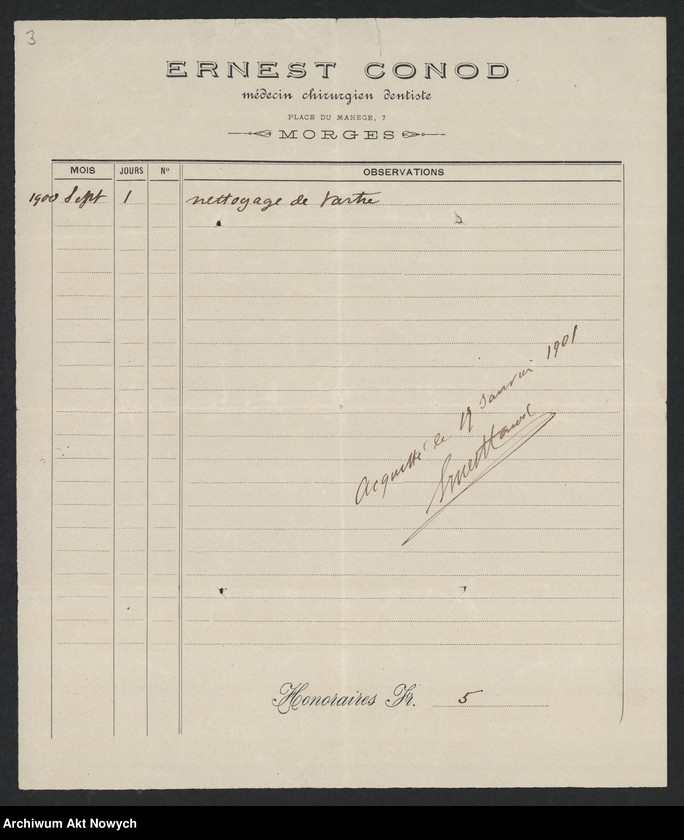 3
ERNEST CONOD
médecin chirurgien dentiste
PLACE DU MANÈGE, 7
MORGES
MOIS JOURS No OBSERVATIONS
1900 Sept 1 nettoyage de tartre
Acquitté le 19 Janvier 1901
Honoraires Fr. 5
Archiwum Akt Nowych